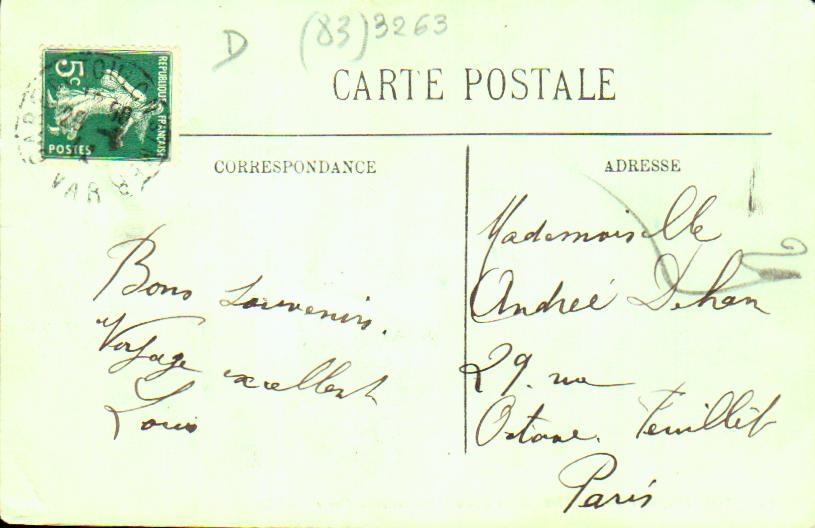 D (83) 3263
CARTE POSTALE
RÉPUBLIQUE FRANÇAISE
5c
POSTES
TOULON
VAR
CORRESPONDANCE
Bons souvenirs.
Voyage excellent
Louis
ADRESSE
Mademoiselle
Andrée Dehan
29. rue
Octave. Feuillet
Paris